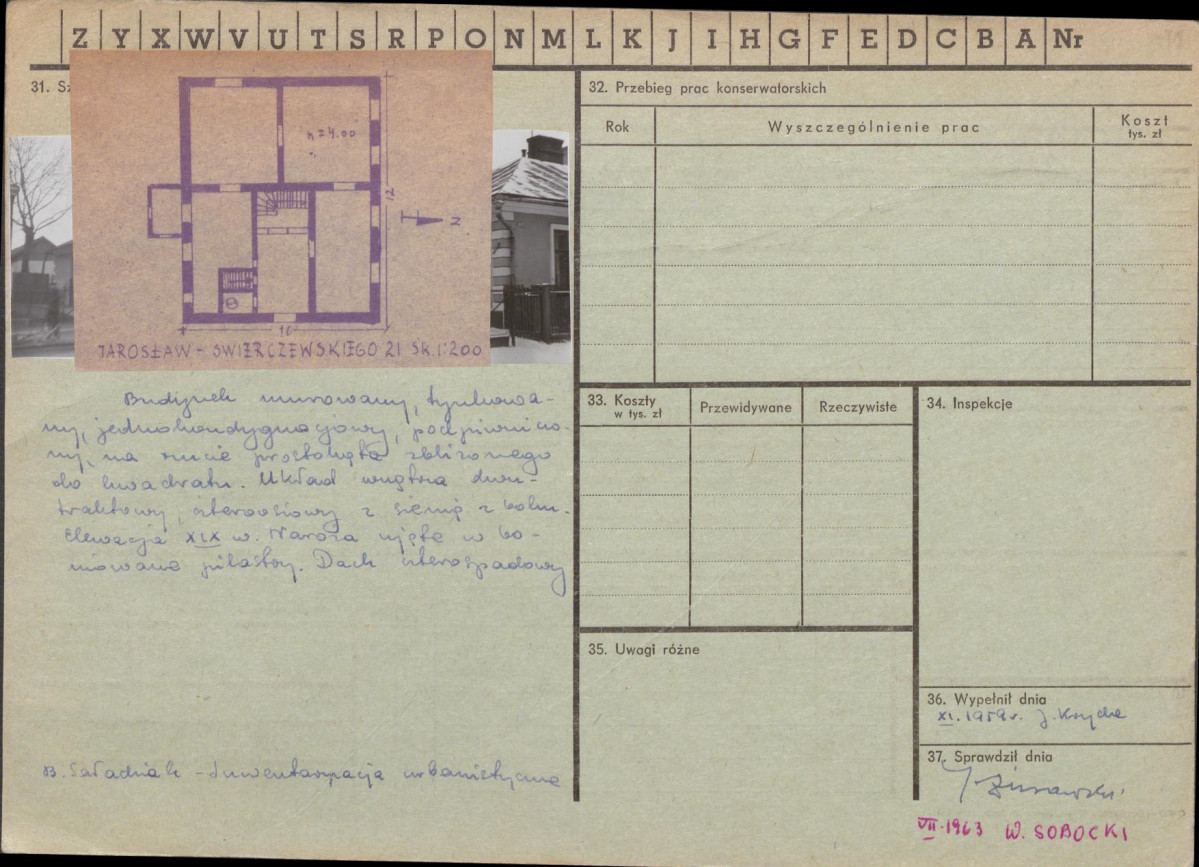 Z Y X W V U T S R P O N M L K J I H G F E D C B A Nr
31. Sz
h = 4.00
12
N
10
JAROSŁAW - SWIERCZEWSKIEGO 21 SK. 1:200
Budynek murowany, tynkowa-
ny, jednokondygnacjowy, podpiwniczo-
ny, na rzucie prostokąta zbliżonego
do kwadratu. Układ wnętrza dwu-
traktowy, czteroosiowy z sienią z boku.
Elewacja XIX w. Naroża ujęte w bo-
niowane pilastry. Dach czterospadowy
B. - Inwentaryzacja urbanistyczna
32. Przebieg prac konserwatorskich
Rok Wyszczególnienie prac Koszt
tys. zł
33. Koszty
w tys. zł
Przewidywane Rzeczywiste
34. Inspekcje
35. Uwagi różne
36. Wypełnił dnia
XI. 1959 r. J.
37. Sprawdził dnia
VII-1963 W. SOBOCKI